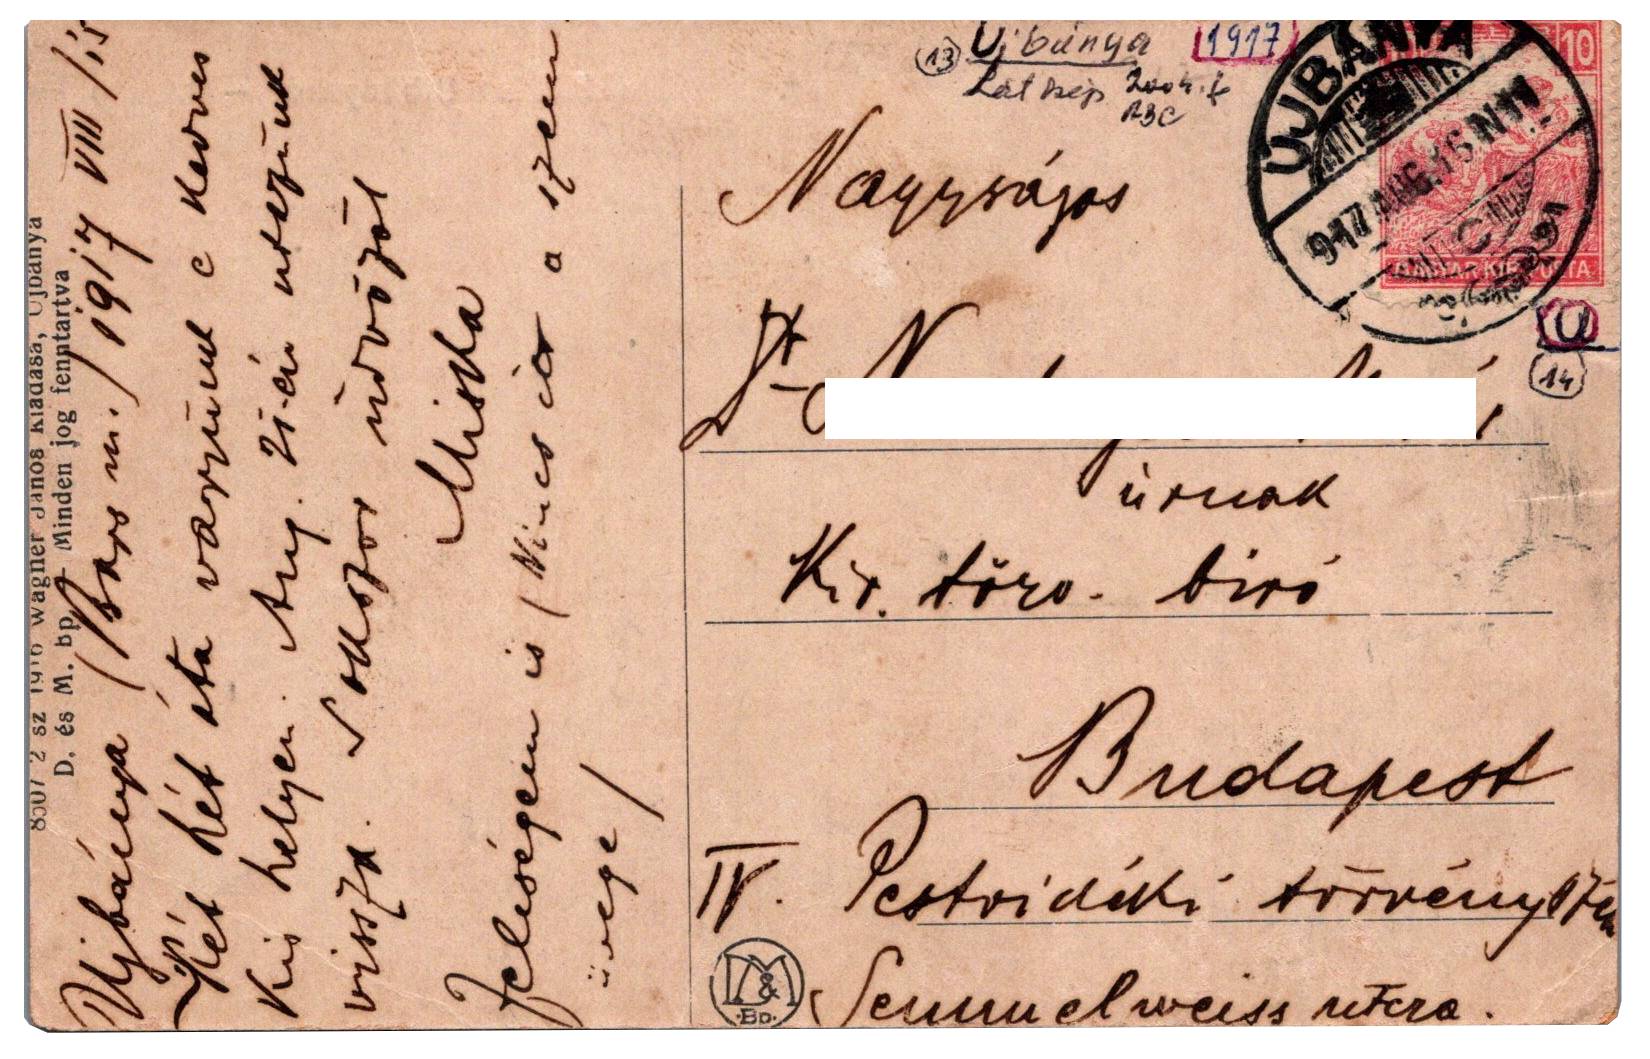 8507 2 sz 1916 Wagner János kiadása, Ujbánya
D. és M. bp. Minden jog fenntartva
Ujbánya (Bars m.) 1917 VIII/15
Két hét óta vagyunk e kedves
kis helyen. Aug. 25-én utazunk
vissza. Sokszor üdvözöl
Miska
Feleségem is (Nincs itt a szem
üvege)
13 Ujbánya 1917
Látkép 2004.
ABC
UJBÁNYA
917 AUG. 16 N11
C
10
MAGYAR KIR. POSTA
14
Nagyságos
Dr. N
úrnak
Kir. törv. biró
Budapest
IV. Pestvidéki törvényszék
Semmelweiss utca.
D&M
Bp.